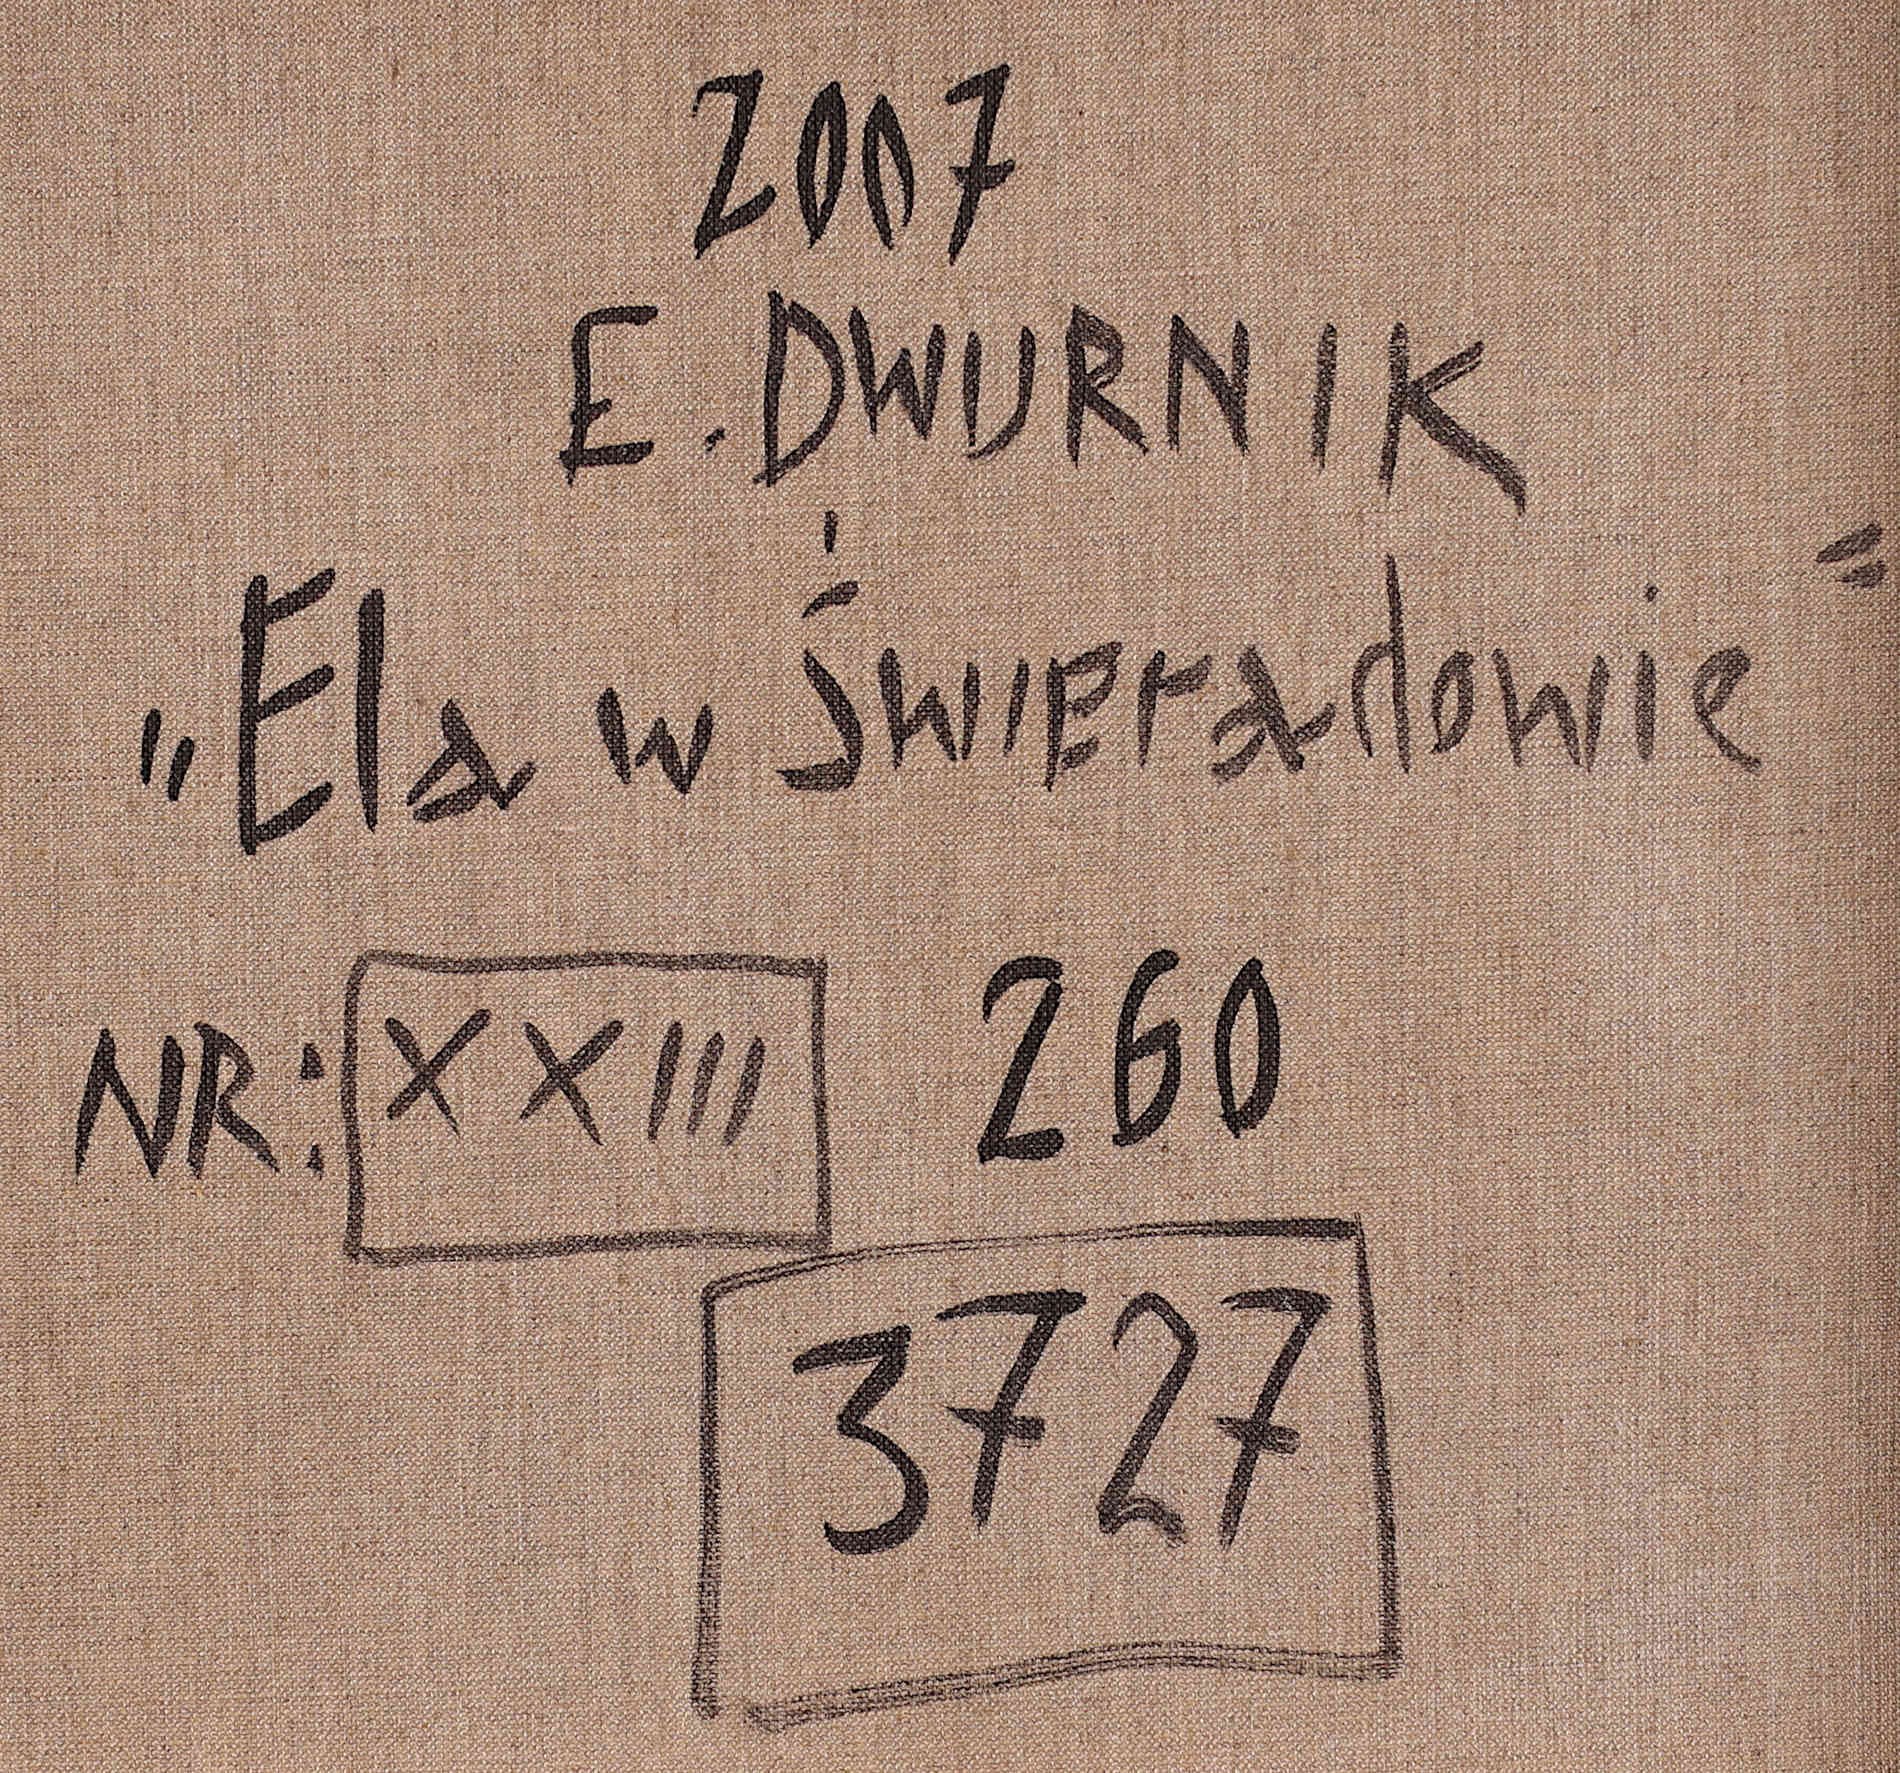 2007
E. DWURNIK
„Ela w Świeradowie"
NR: XXIII 260
3727